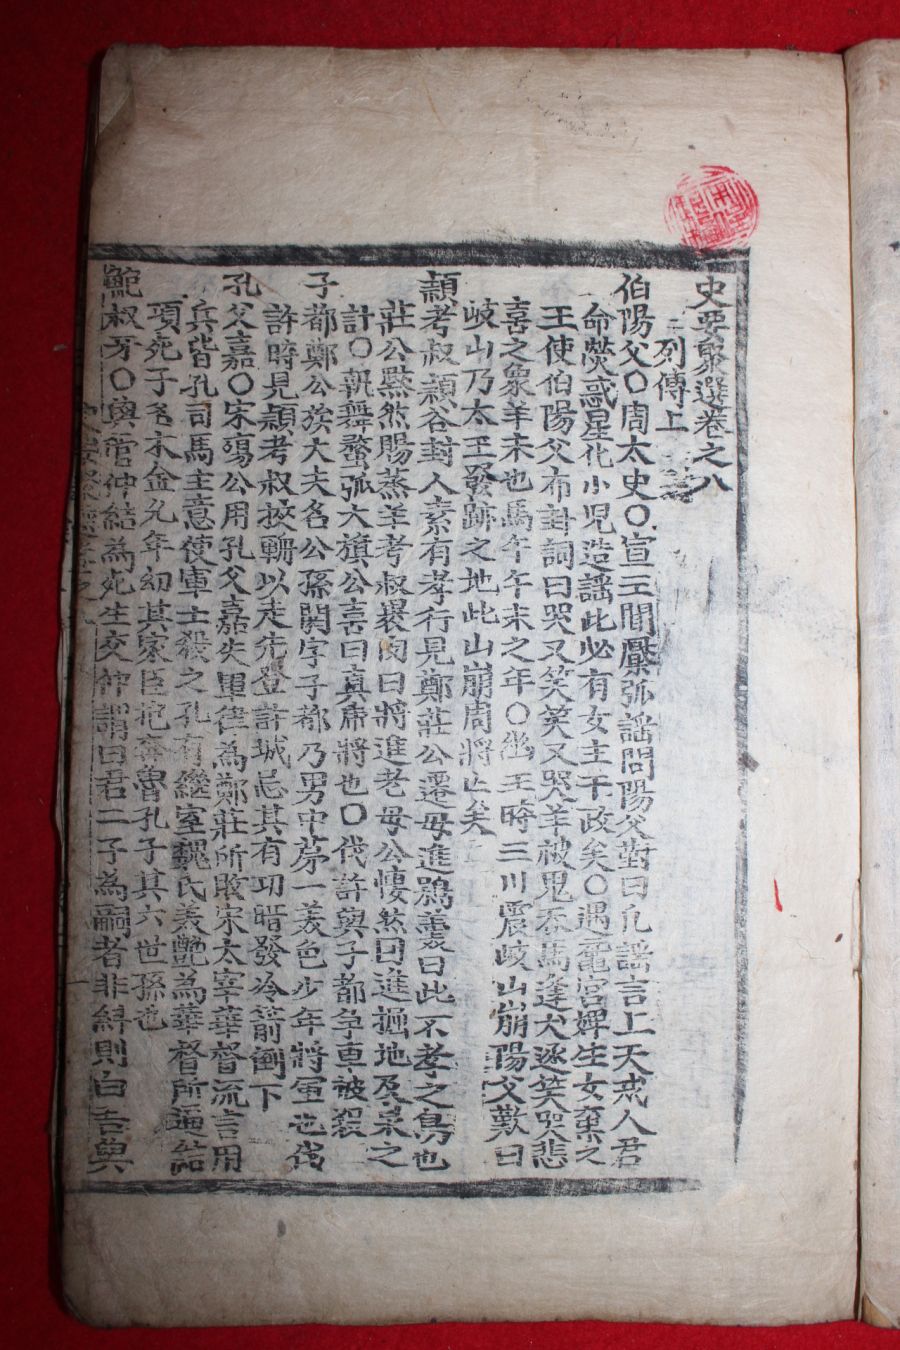 史要聚選卷之八
列傳上
伯陽父〇周太史〇宣王聞檿弧謠問陽父對曰凡謠言上天戒人君
命熒惑星化小児造謠此必有女主干政矣〇遇黿宮婢生女棄之
王使伯陽父布卦詞曰哭又笑笑又哭羊被鬼吞馬逢犬逐笑哭悲
喜之象羊未也馬午午未之年〇幽王時三川震岐山崩陽父歎曰
岐山乃太王發跡之地此山崩周將亡矣
頴考叔頴谷封人素有孝行見鄭莊公遷母進鴞羹曰此不孝之鳥也
莊公黙然賜蒸羊考叔褁肉曰將進老母公悽然因進掘地及泉之
計〇執舞蝥弧大旗公喜曰真席將也〇伐許與子都争車被殺
子都鄭公族大夫名公孫閼字子都乃男中苐一美色少年將軍也伐
許時見頴考叔挾輈以走先登許城忌其有功暗發冷箭倒下
孔父嘉〇宋殤公用孔父嘉失軍律為鄭莊所敗宋太宰華督流言用
兵皆孔司馬主意使軍士殺之孔有繼室魏氏美艷為華督所逼結
項死子名木金允年幼其家臣抱奔魯孔子其六世孫也
鮑叔牙〇與管仲結為死生交仲謂曰君二子為嗣者非糾則白吾與